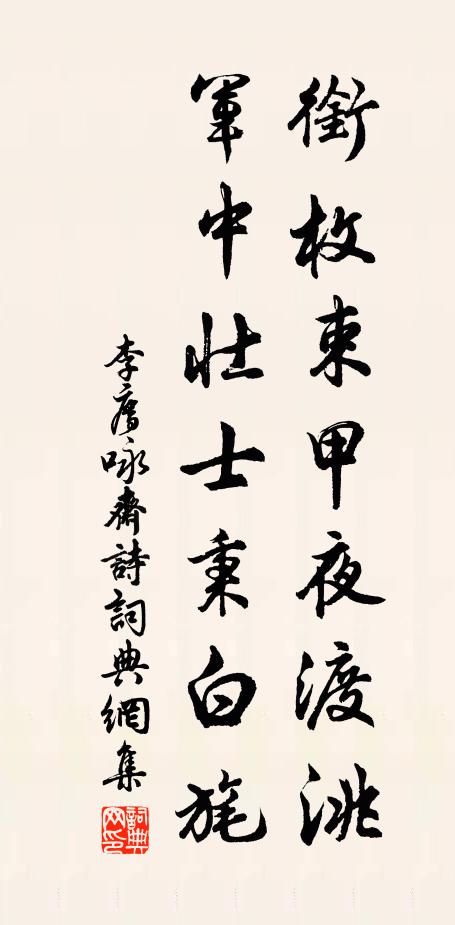 銜枚束甲夜渡洮
軍中壯士秉白旄
李咏齋詩詞典網集
詞典
网印